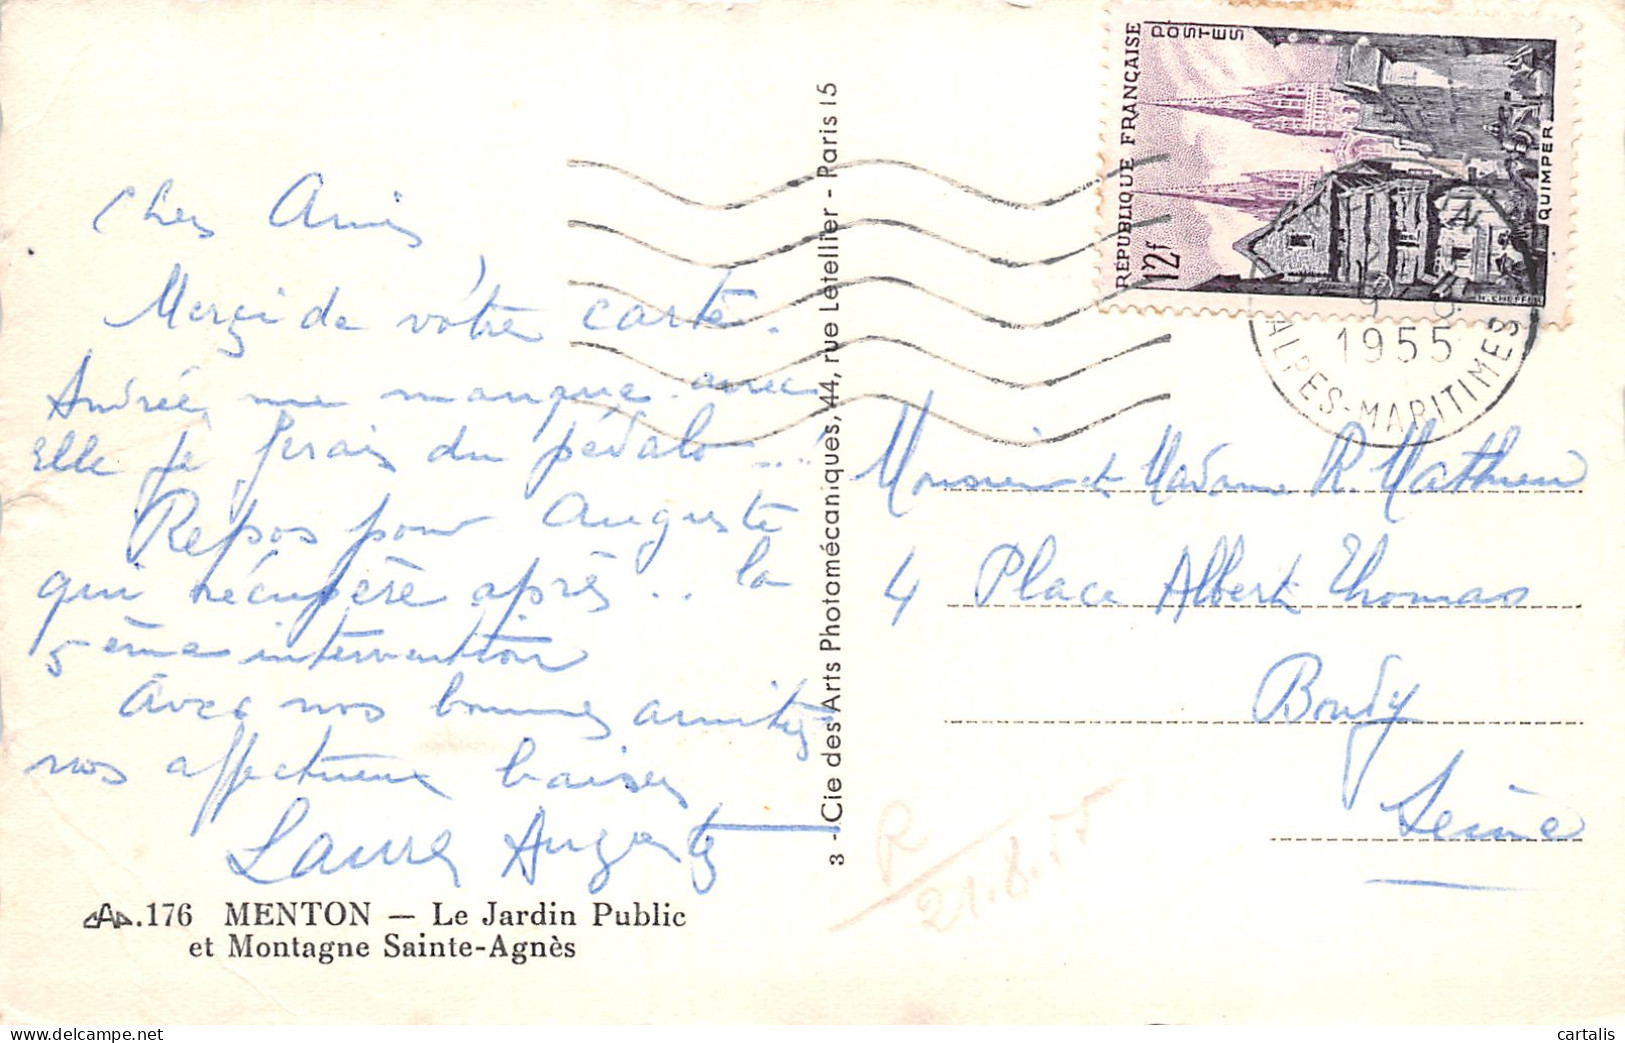 Chers Amis
Merci de votre carte.
Andrée, me manque avec
elle je ferais du pédalo ....
Repos pour Auguste
qui récupère après .. la
5ème intervention
Avec nos bonnes amitiés
nos affectueux baisers
Laure Auguste
.176 MENTON — Le Jardin Public
et Montagne Sainte-Agnès
3 - Cie des Arts Photomécaniques, 44, rue Letellier - Paris 15
RÉPUBLIQUE FRANÇAISE
POSTES
12f
QUIMPER
1955
ALPES-MARITIMES
Monsieur et Madame R. Mathieu
4 Place Albert Thomas
Bondy
Seine
R
21.8.55
cartalis